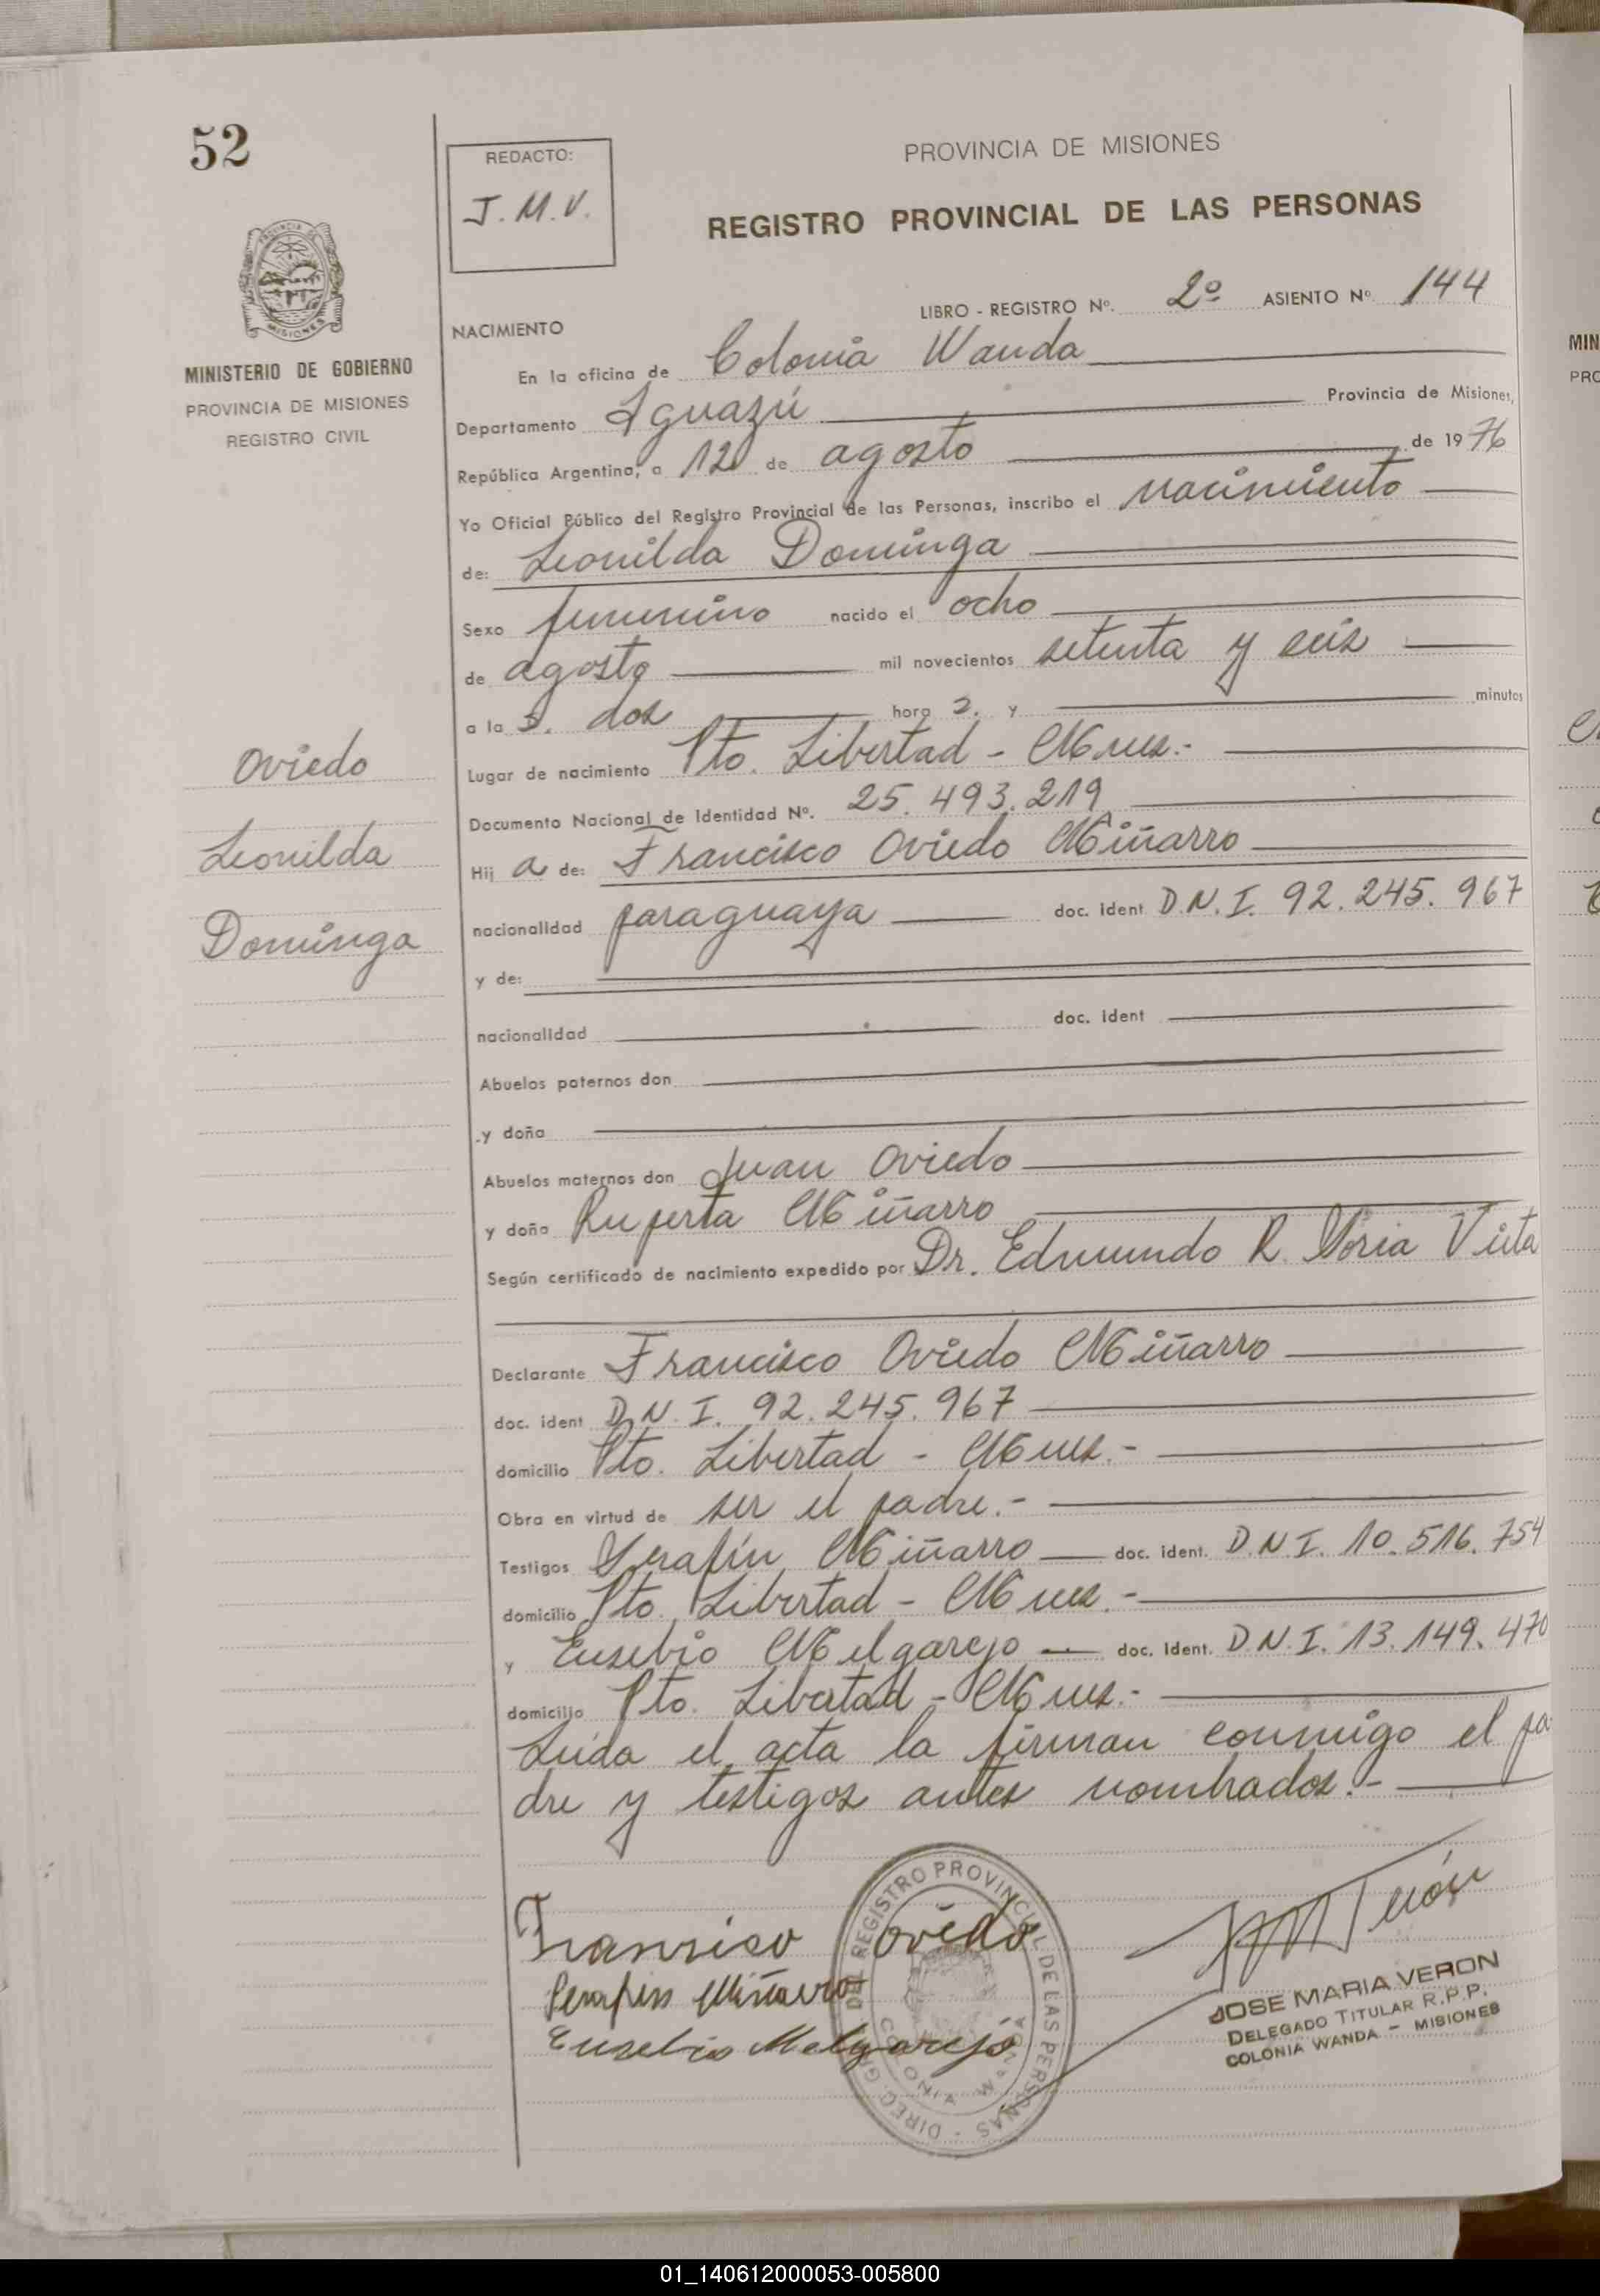 52
REDACTO:
J.M.V.
PROVINCIA DE MISIONES
REGISTRO PROVINCIAL DE LAS PERSONAS
PROVINCIA DE
MISIONES
MINISTERIO DE GOBIERNO
PROVINCIA DE MISIONES
REGISTRO CIVIL
LIBRO - REGISTRO Nº. 2º ASIENTO Nº 144
NACIMIENTO
En la oficina de Colonia Wanda
Departamento Iguazú Provincia de Misiones,
República Argentina, a 12 de agosto de 1976
Yo Oficial Público del Registro Provincial de las Personas, inscribo el nacimiento
de: Leonilda Dominga
Sexo femenino nacido el ocho
de agosto mil novecientos setenta y seis
a la s. dos hora s. y minutos
Lugar de nacimiento Pto. Libertad - Mnes.-
Documento Nacional de Identidad Nº. 25.493.219
Hij a de: Francisco Oviedo Miñarro
nacionalidad paraguaya doc. ident D.N.I. 92.245.967
y de:
nacionalidad doc. ident
Abuelos paternos don
y doña
Abuelos maternos don Juan Oviedo
y doña Ruperta Miñarro
Según certificado de nacimiento expedido por Dr. Edmundo R. Soria Vieta
Declarante Francisco Oviedo Miñarro
doc. ident D.N.I. 92.245.967
domicilio Pto. Libertad - Mnes.-
Obra en virtud de ser el padre.-
Testigos Serafín Miñarro doc. ident. D.N.I. 10.516.754
domicilio Pto. Libertad - Mnes.-
y Eusebio Melgarejo doc. Ident. D.N.I. 13.149.470
domicilio Pto. Libertad - Mnes.-
Leída el acta la firman conmigo el pa
dre y testigos antes nombrados.-
Oviedo
Leonilda
Dominga
Fransisco Oviedo
Serafin Miñarro
Eusebio Melgarejo
DIREC. GRAL. DEL REGISTRO PROVINCIAL DE LAS PERSONAS -
COLONIA WANDA
JOSE MARIA VERON
DELEGADO TITULAR R.P.P.
COLONIA WANDA - MISIONES
MIN
PRO
01_140612000053-005800